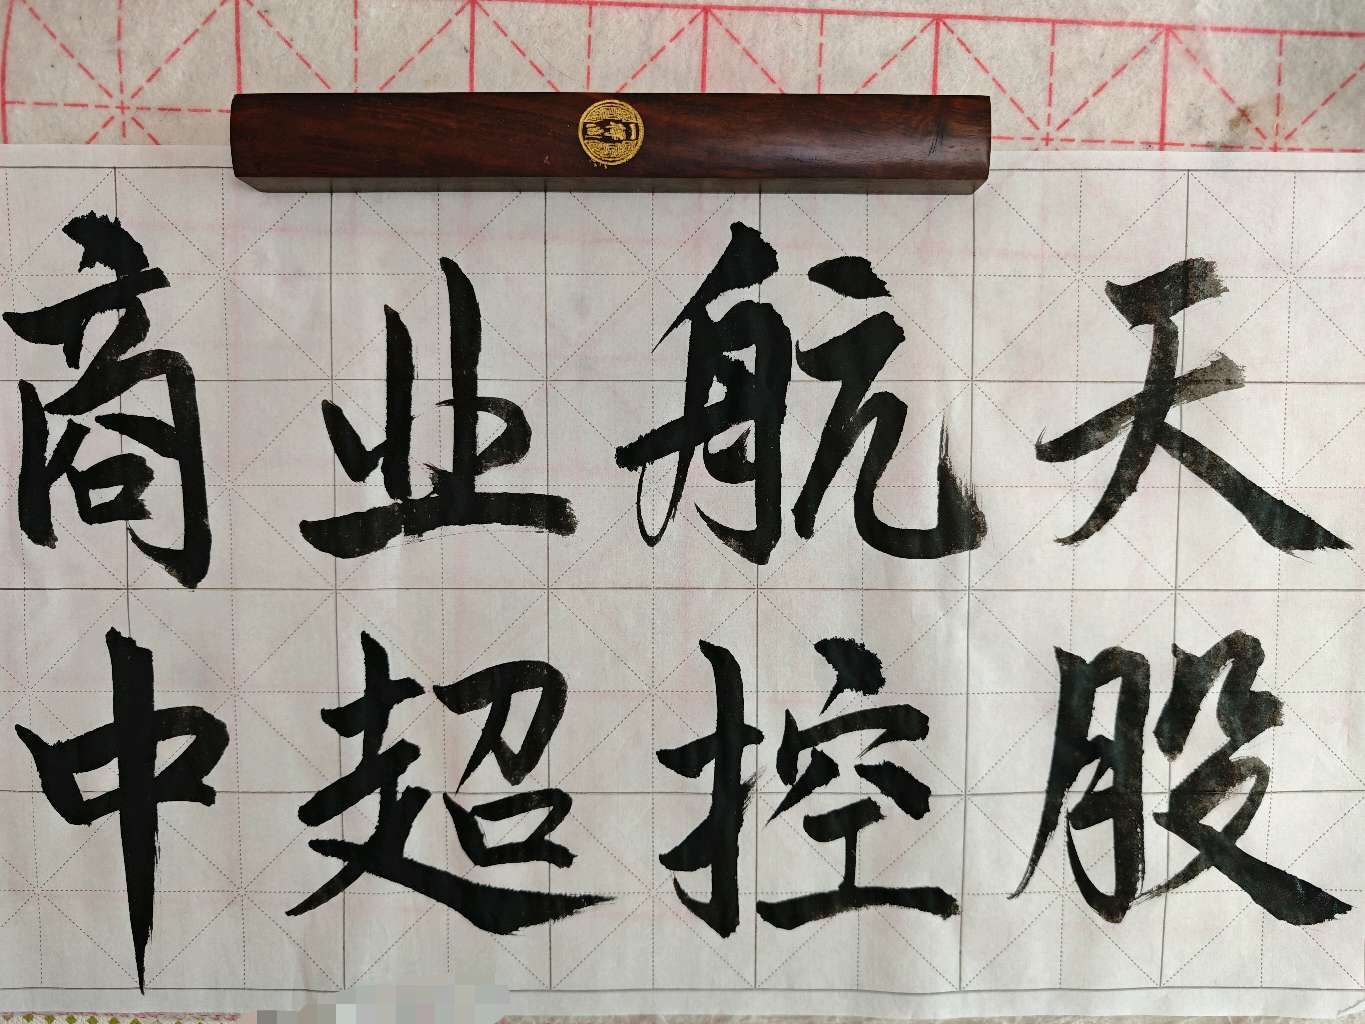 商业航天
中超控股